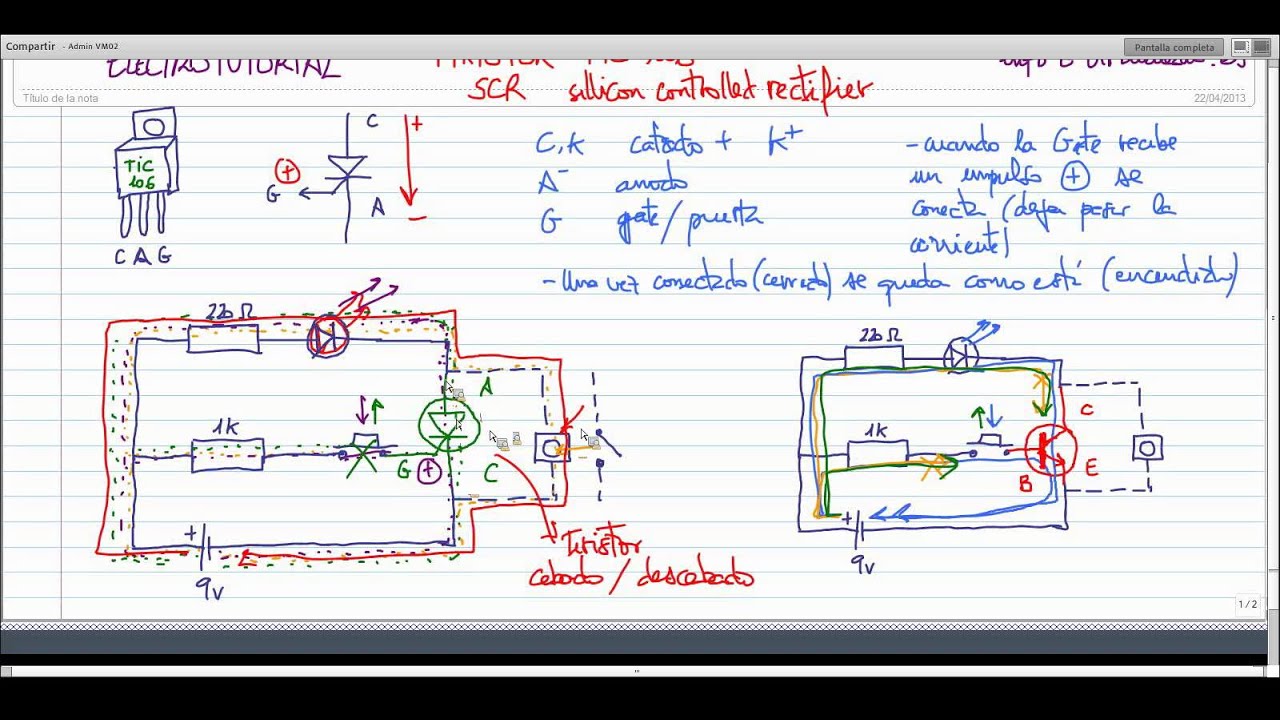 Compartir - Admin VM02
Pantalla completa
ELECTROTUTORIAL
SCR sillicon controlled rectifier
Título de la nota
22/04/2013
TiC
106
C A G
C
+
+
G
A
-
C, K catodo + K+
A- anodo
G gate/puerta
- cuando la Gate recibe
un impulso + se
conecta (deja pasar la
corriente)
- Una vez conectado (cerrado) se queda como está (encendido)
220 Ω
A
1K
G +
C
+
9v
Tiristor
cebado / descebado
220 Ω
1K
C
B
E
+
9v
1 / 2